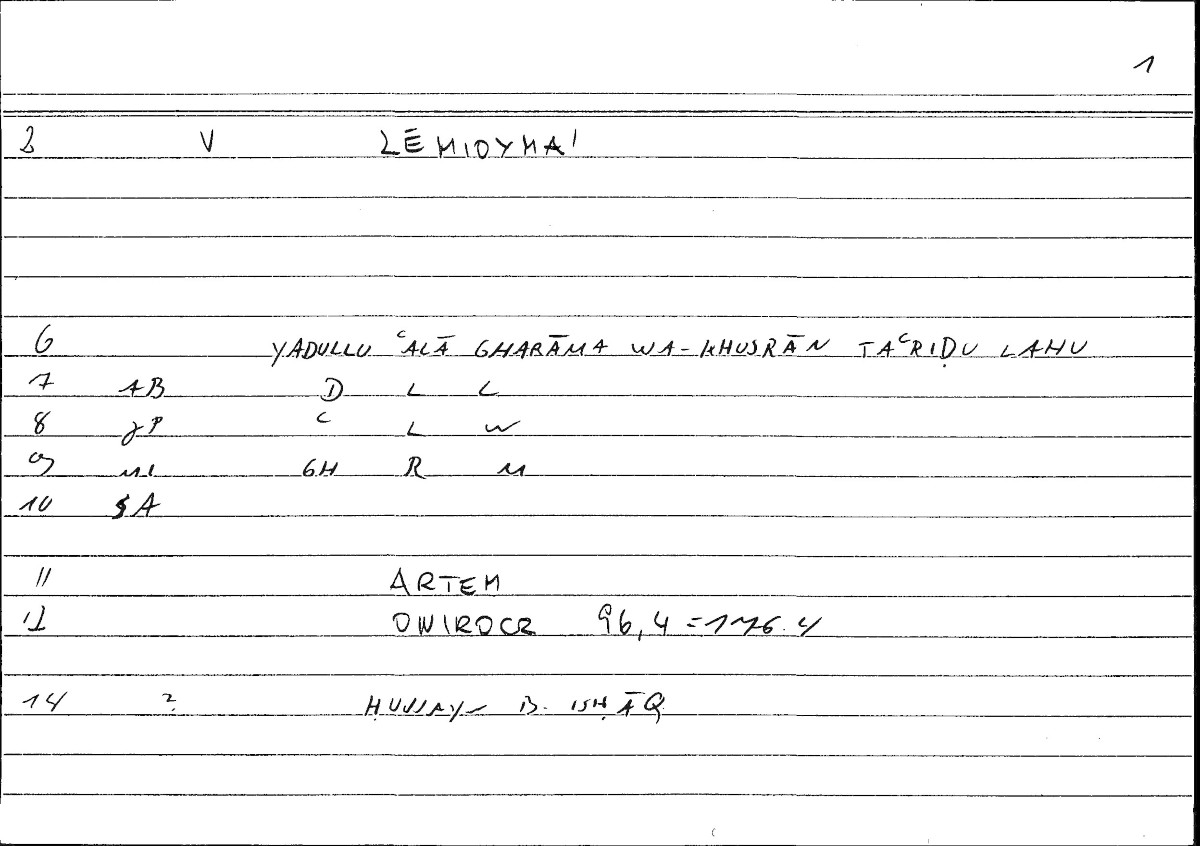 1
2 V ZĒMIOYMAI
6 YADULLU ʿALĀ GHARĀMA WA-KHUSRĀN TAʿRIḌU LAHU
7 AB D L L
8 JP ʿ L W
9 ML GH R M
10 SA
11 ARTEM
12 ONIROCR 96,4=176.4
14 ? ḤUNAYN B. ISḤĀQ